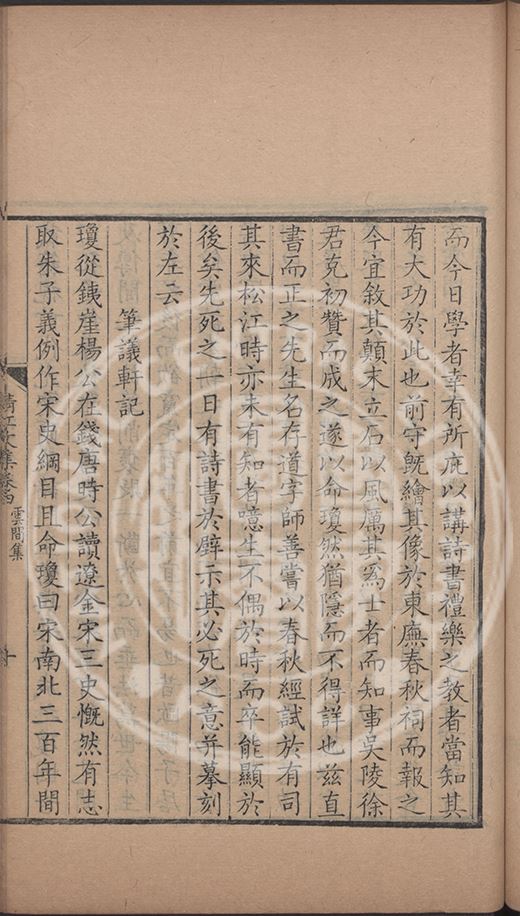 而今日學者幸有所庇以講詩書禮樂之教者當知其
有大功於此也前守既繪其像於東廡春秋祠而報之
今宜敘其顛末立石以風厲其為士者而知事吳陵徐
君克初贊而成之遂以命瓊然猶隱而不得詳也茲直
書而正之先生名存道字師善嘗以春秋經試於有司
其來松江時亦未有知者噫生不偶於時而卒能顯於
後矣先死之一日有詩書於壁示其必死之意并摹刻
於左云
筆議軒記
瓊從鐵崖楊公在錢唐時公讀遼金宋三史慨然有志
取朱子義例作宋史綱目且命瓊曰宋南北三百年間
清江文集卷四 雲間集
十